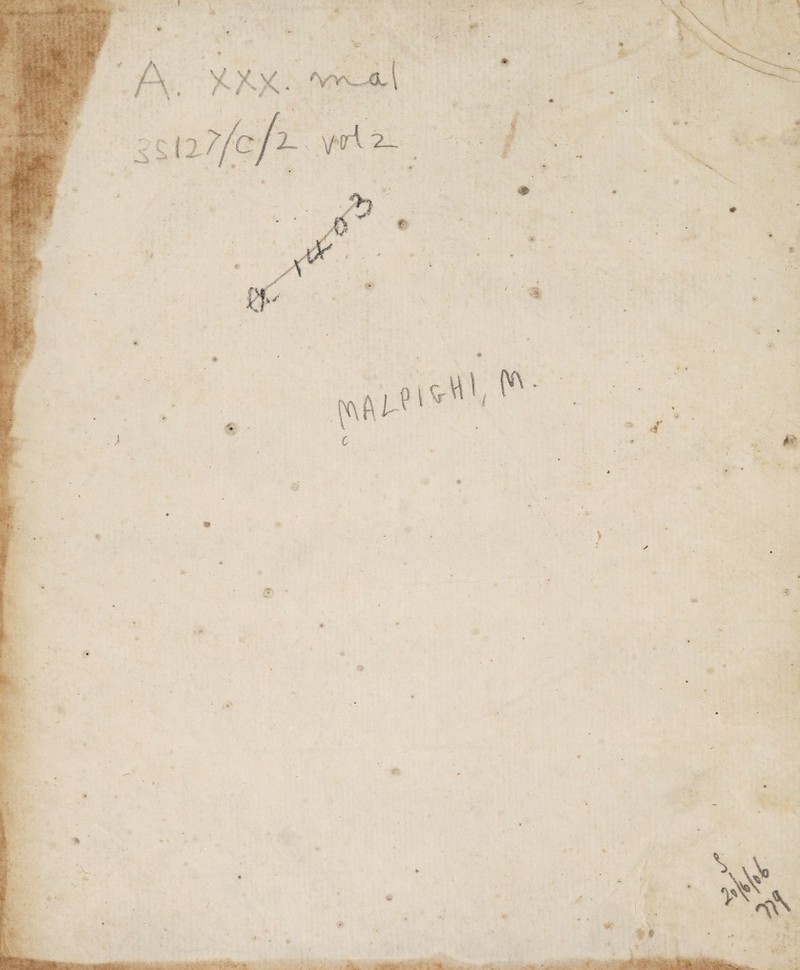 A. XXX. mal
35127/C/2 vol 2
1403
MALPIGHI, M.
c
S
20/6/06
779